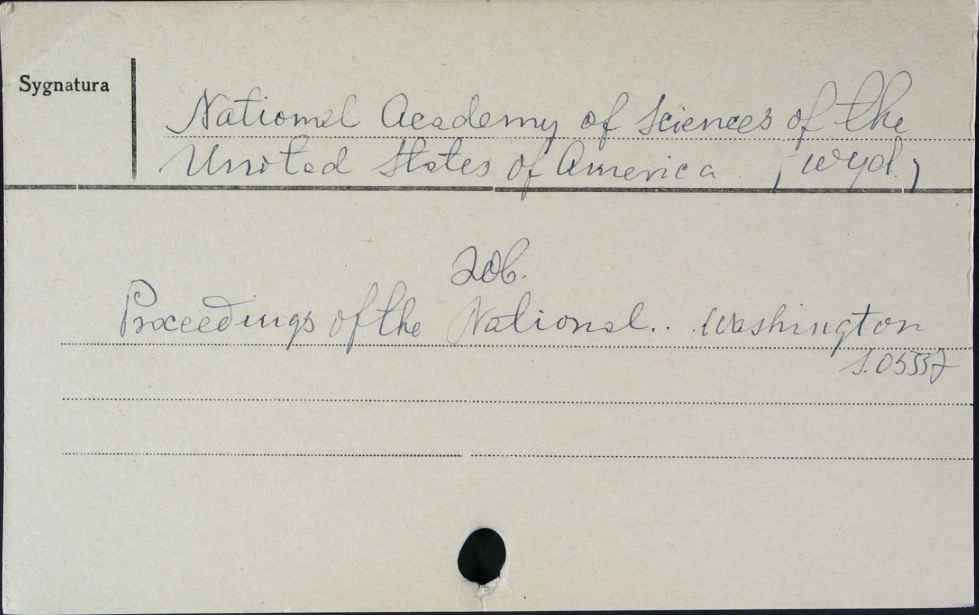 Sygnatura
National Academy of Sciences of the
United States of America , wyd. ,
Zob.
Proceedings of the National.. Washington